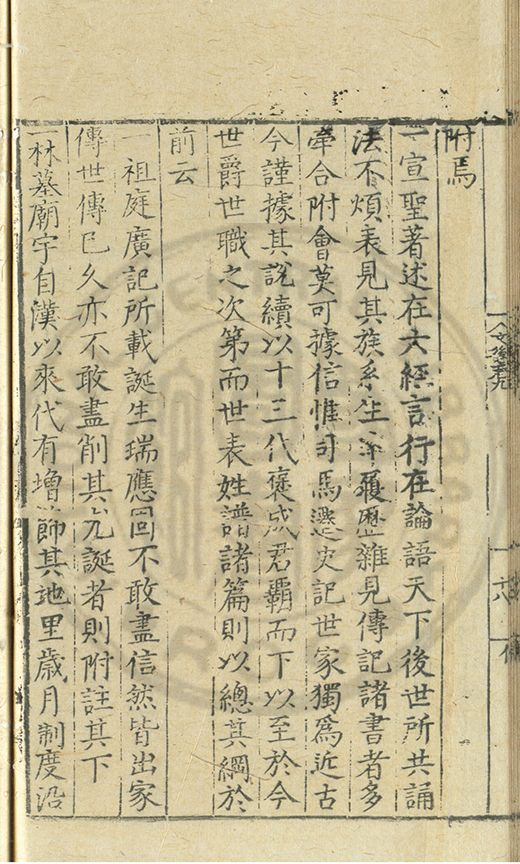 附焉
一宣聖著述在六經言行在論語天下後世所共誦
法不煩表見其族系生平履歷雜見傳記諸書者多
牽合附會莫可據信惟司馬遷史記世家獨爲近古
今謹據其說續以十三代褒成君霸而下以至於今
世爵世職之次第而世表姓譜諸篇則以總其綱於
前云
一祖庭廣記所載誕生瑞應固不敢盡信然皆出家
傳世傳已久亦不敢盡削其尤誕者則附註其下
一林墓廟宇自漢以來代有增飾其地里歲月制度沿